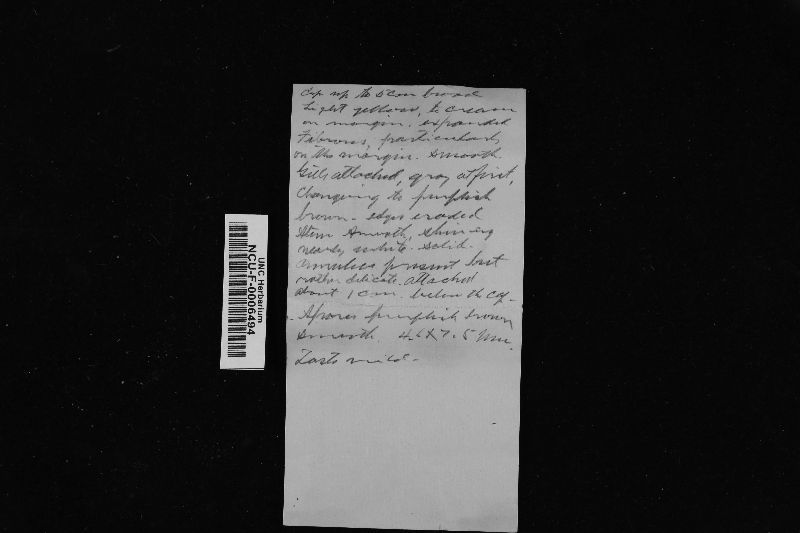 Cap up to 5 cm broad
light yellow, to cream
on margin. expanded
Fibrous, particularly
on the margin. smooth.
Gills attached, gray at first,
changing to purplish
brown - edges eroded
Stem smooth, shining
nearly white. solid.
annulus present but
rather delicate. attached
about 1 cm. below the cap -
Spores purplish brown
smooth. 4. X 7.5
Taste mild -
UNC Herbarium
NCU-F-0006494